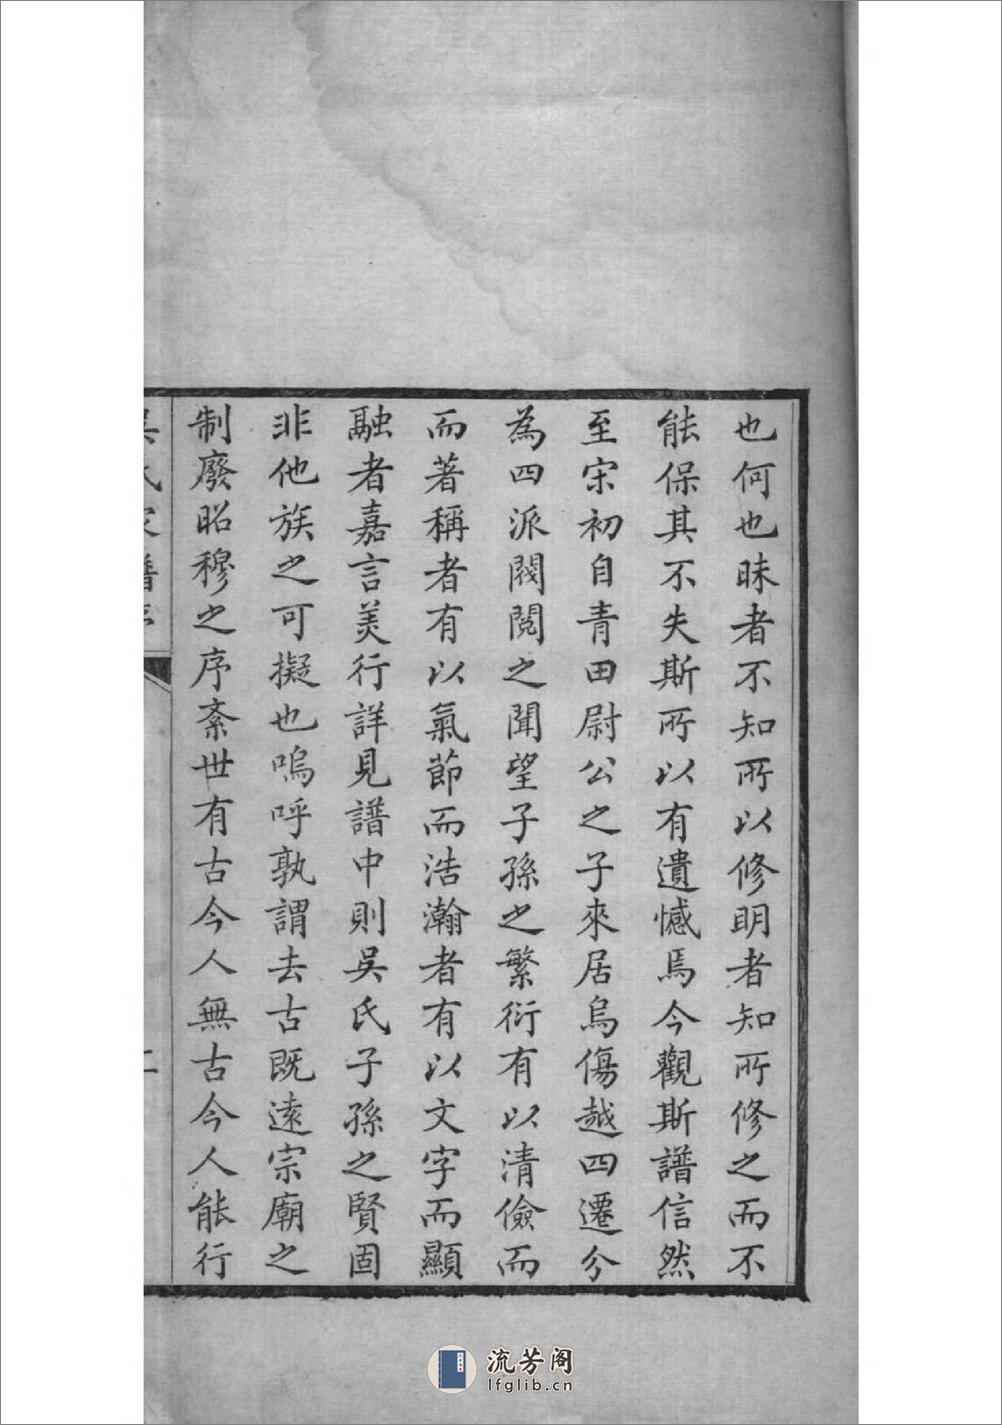 也何也昧者不知所以修明者知所修之而不
能保其不失斯所以有遺憾焉今觀斯譜信然
至宋初自青田尉公之子來居烏傷越四遷分
為四派閥閱之聞望子孫之繁衍有以清儉而
而著稱者有以氣節而浩瀚者有以文字而顯
融者嘉言美行詳見譜中則吳氏子孫之賢固
非他族之可擬也嗚呼孰謂去古既遠宗廟之
制廢昭穆之序紊世有古今人無古今人能行
吳氏家譜
二
流芳阁
lfglib.cn